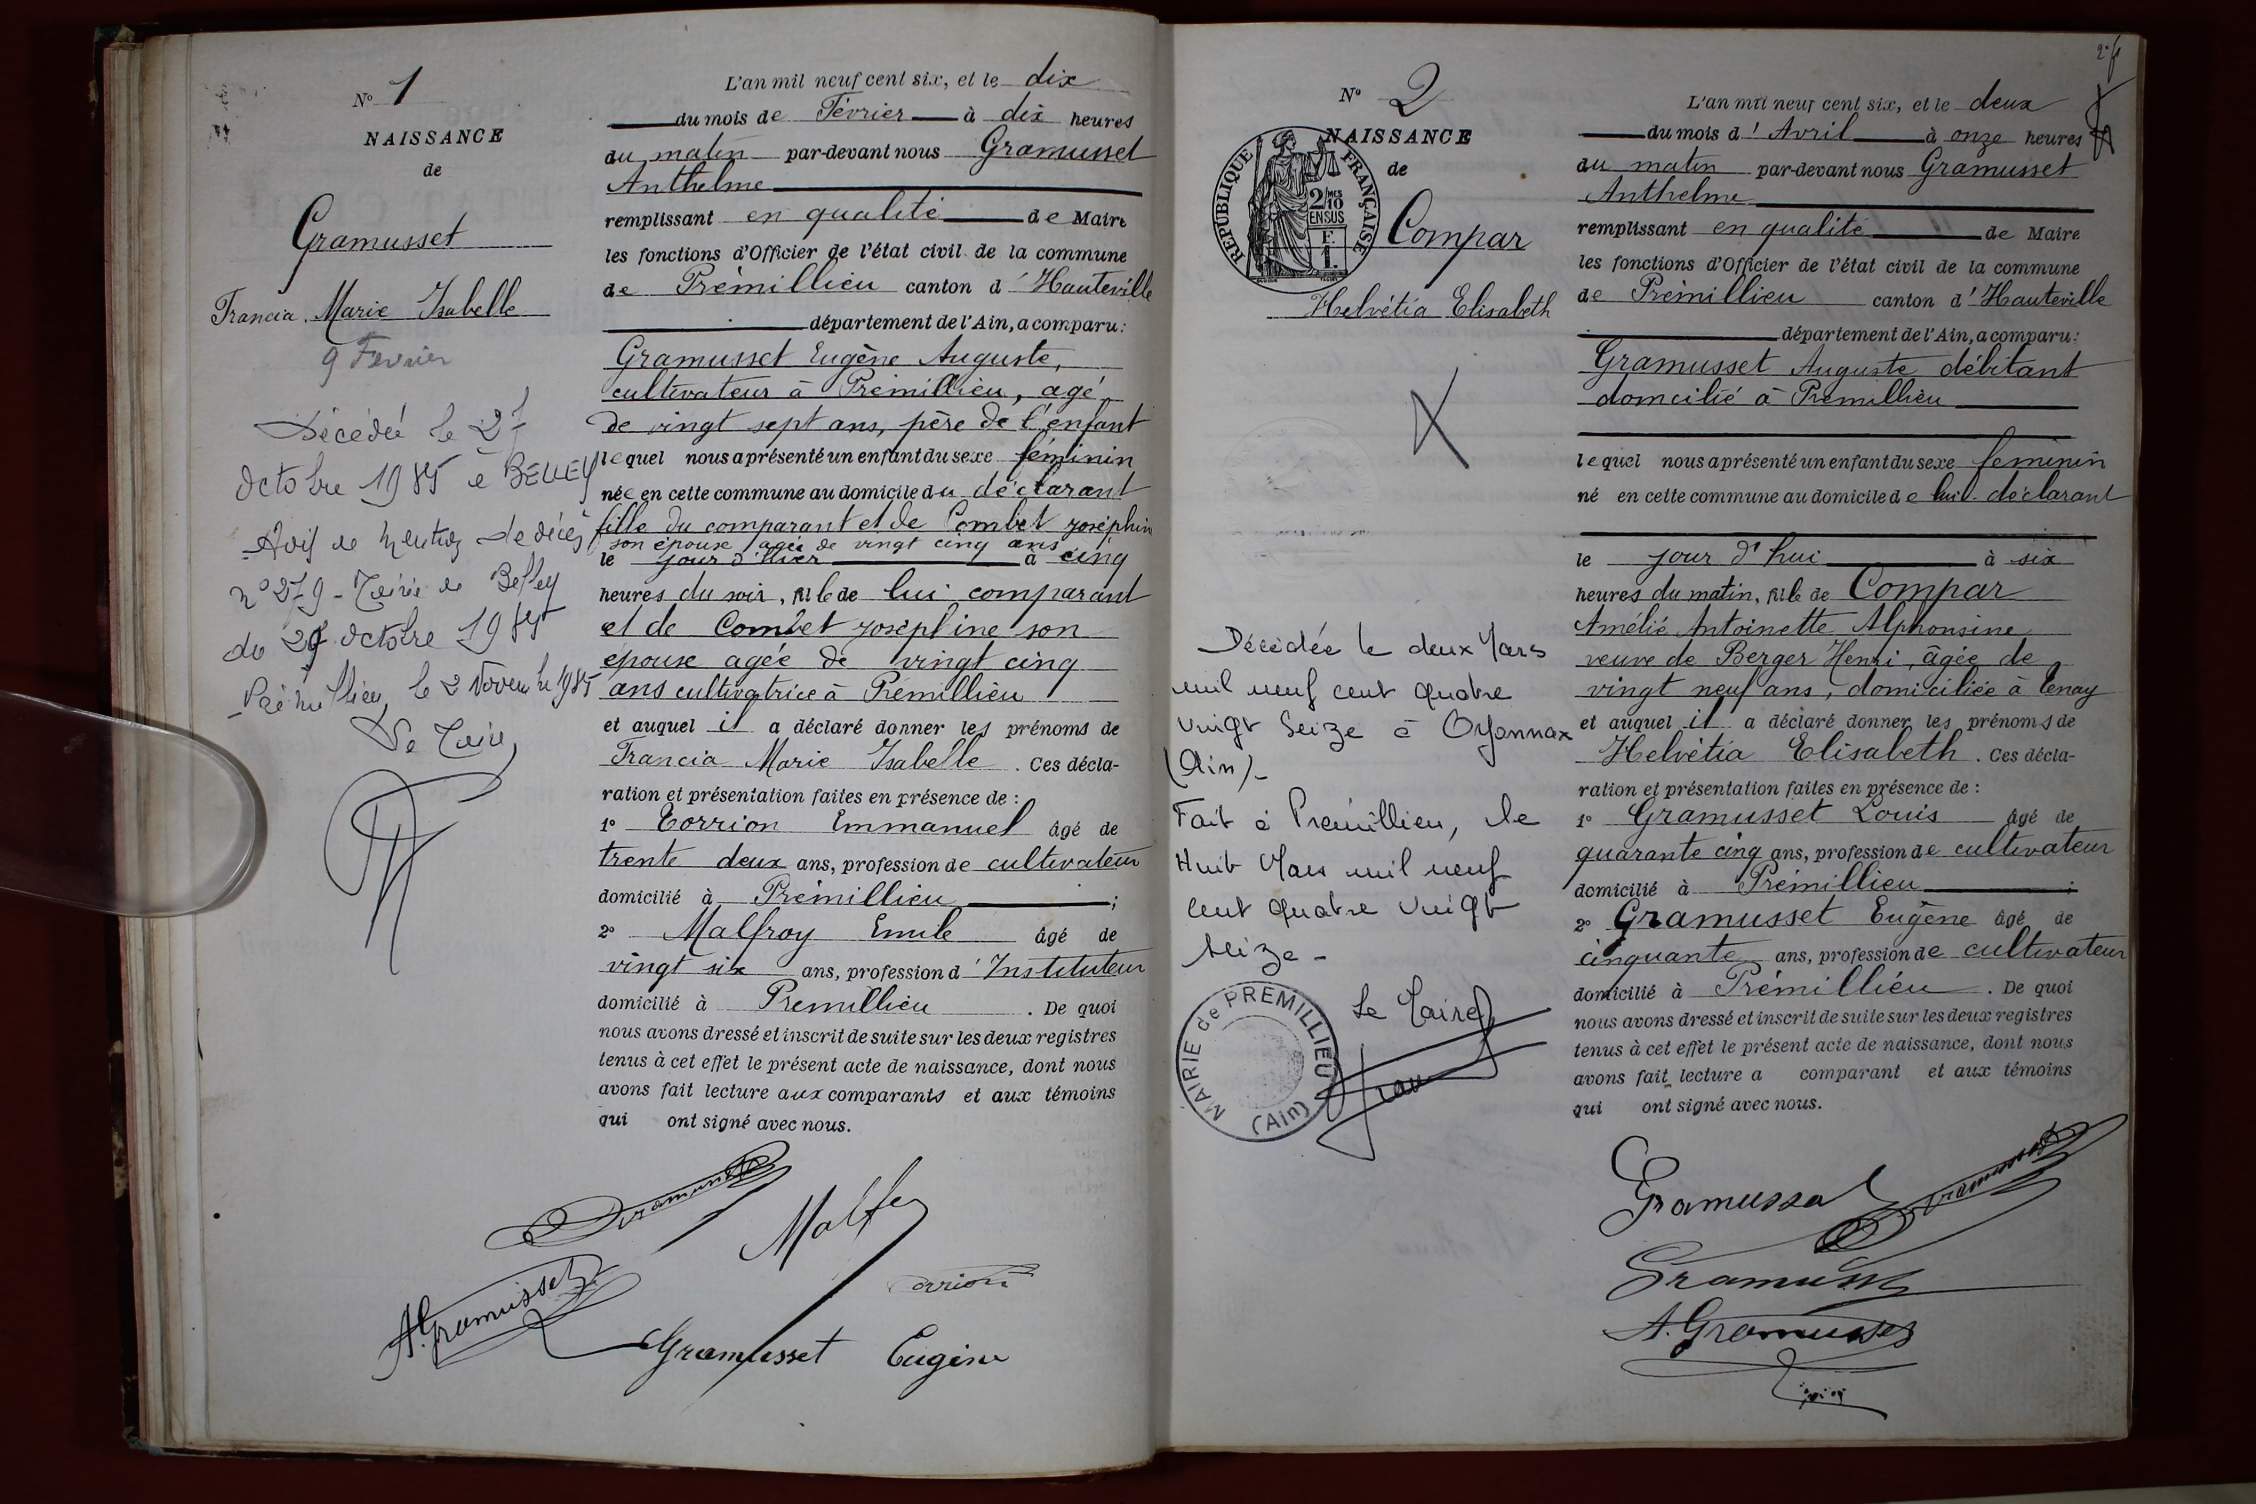 N° 1
NAISSANCE
de
Gramusset
Francia Marie Isabelle
9 Fevrier
Décédée le 27
Octobre 1985 à BELLEY
Avis de mention de décès
n° 279 - Mairie de Belley
du 29 Octobre 1985
Prémillieu, le 2 Novembre 1985
Le Maire,
L'an mil neuf cent six, et le dix
du mois de Février à dix heures
du matin par-devant nous Gramusset
Anthelme
remplissant en qualité de Maire
les fonctions d'Officier de l'état civil de la commune
de Prémillieu canton d'Hauteville
département de l'Ain, a comparu :
Gramusset Eugène Auguste,
cultivateur à Prémillieu, agé
de vingt sept ans, père de l'enfant
lequel nous a présenté un enfant du sexe féminin
née en cette commune au domicile du déclarant
fille du comparant et de Combet Joséphine
son épouse agée de vingt cinq ans
le jour d'hier à cinq
heures du soir, fille de lui comparant
et de Combet Joséphine son
épouse agée de vingt cinq
ans cultivatrice à Prémillieu
et auquel il a déclaré donner les prénoms de
Francia Marie Isabelle. Ces décla-
ration et présentation faites en présence de :
1° Torrion Emmanuel âgé de
trente deux ans, profession de cultivateur
domicilié à Prémillieu ;
2° Malfroy Emile âgé de
vingt six ans, profession d'Instituteur
domicilié à Prémillieu. De quoi
nous avons dressé et inscrit de suite sur les deux registres
tenus à cet effet le présent acte de naissance, dont nous
avons fait lecture aux comparants et aux témoins
qui ont signé avec nous.
Gramusset
Malfroy
A. Gramusset
Torrion
Gramusset Eugène
2 f
N° 2
NAISSANCE
de
RÉPUBLIQUE FRANÇAISE
2/10 MES
EN SUS
F.
1.
Compar
Helvétia Elisabeth
Décédée le deux Mars
mil neuf cent quatre
vingt seize à Oyonnax
(Ain)-
Fait à Prémillieu, le
Huit Mars mil neuf
cent quatre vingt
seize -
Le Maire,
MAIRIE de PREMILLIEU
(Ain)
L'an mil neuf cent six, et le deux
du mois d'Avril à onze heures
du matin par-devant nous Gramusset
Anthelme
remplissant en qualité de Maire
les fonctions d'Officier de l'état civil de la commune
de Prémillieu canton d'Hauteville
département de l'Ain, a comparu :
Gramusset Auguste débitant
domcilié à Prémillieu
lequel nous a présenté un enfant du sexe féminin
né en cette commune au domicile de lui déclarant
le jour d'hui à six
heures du matin, fille de Compar
Amélie Antoinette Alphonsine
veuve de Berger Henri, âgée de
vingt neuf ans, domiciliée à Tenay
et auquel il a déclaré donner les prénoms de
Helvétia Elisabeth. Ces décla-
ration et présentation faites en présence de :
1° Gramusset Louis âgé de
quarante cinq ans, profession de cultivateur
domicilié à Prémillieu ;
2° Gramusset Eugène âgé de
cinquante ans, profession de cultivateur
domicilié à Prémillieu. De quoi
nous avons dressé et inscrit de suite sur les deux registres
tenus à cet effet le présent acte de naissance, dont nous
avons fait lecture a comparant et aux témoins
qui ont signé avec nous.
Gramusset
Gramusset
Gramusset
A. Gramusset